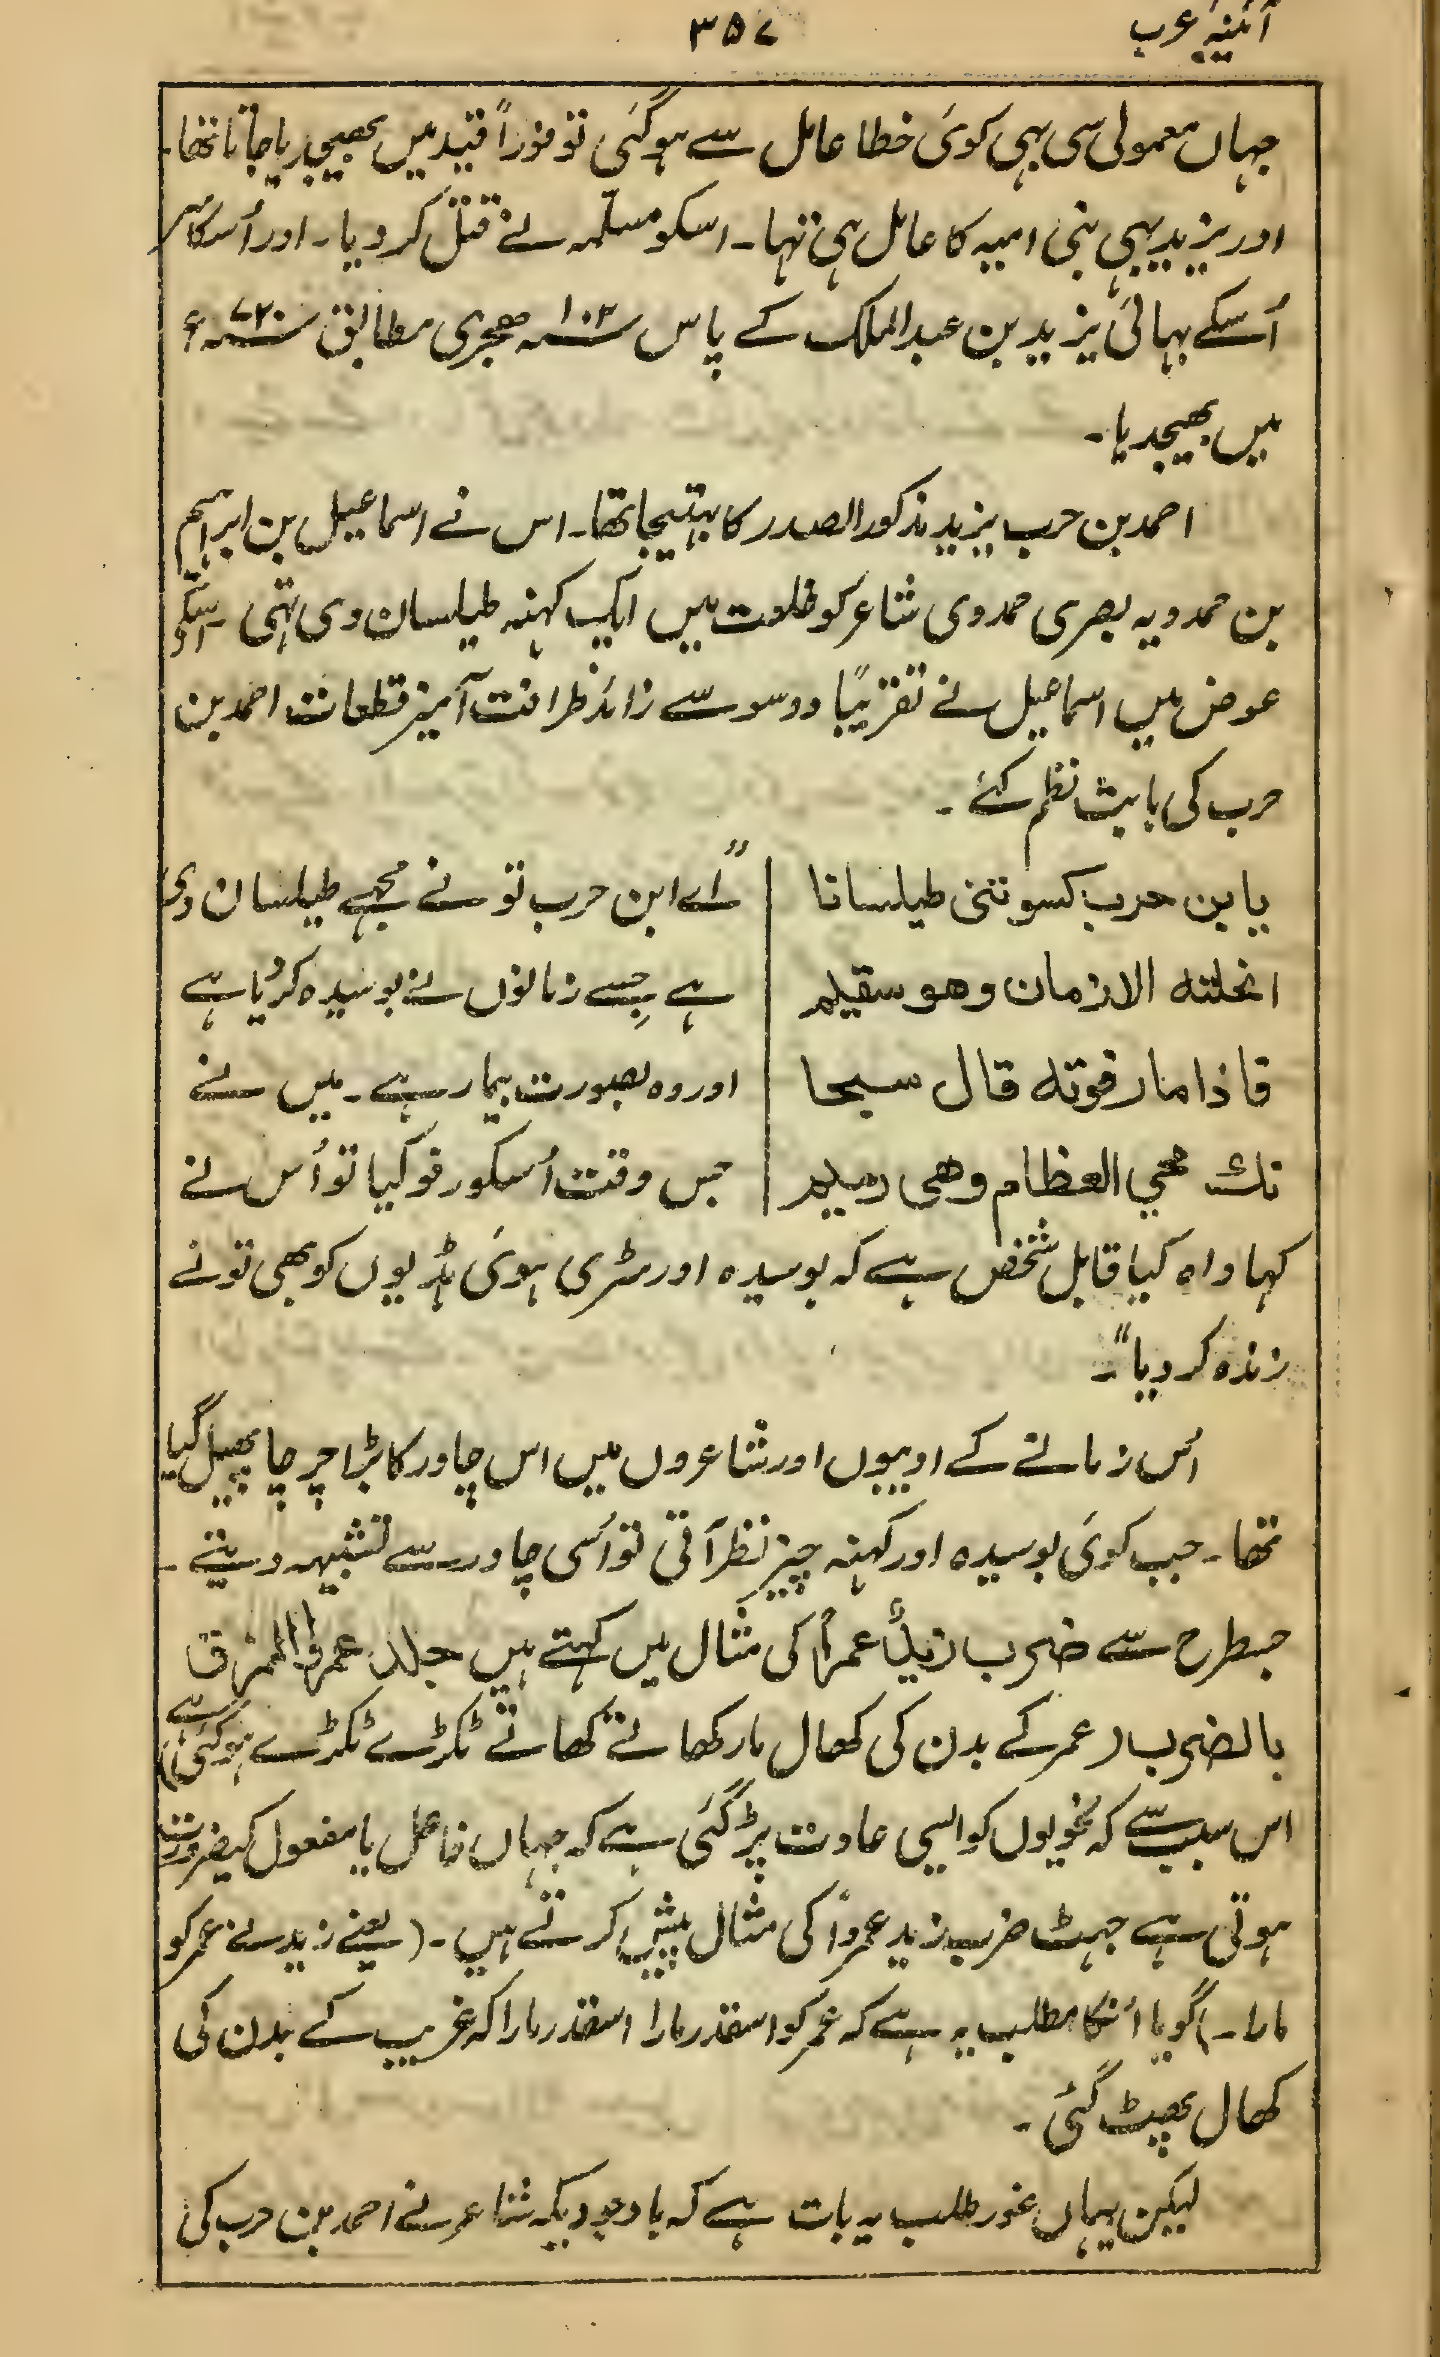 آئینہ عرب
۳۵۷
جہاں معمولی سی بہی کوئی خطا عامل سے ہوگئی تو فوراً قید میں بھیجدیا جاتا تھا۔
اور یزید بہی بنی امیہ کا عامل ہی تہا۔ اسکو مسلمہ نے قتل کردیا۔ اور اُسکا سر
اُسکے بہائی یزید بن عبدالملک کے پاس ۱۰۲؁ ہجری مطابق ۷۲۰؁ء
میں بھیجدیا۔
احمد بن حرب یزید مذکور الصدر کا بہتیجا تھا۔ اس نے اسماعیل بن ابراہیم
بن حمدویہ بصری حمدوی شاعر کو خلوت میں ایک کہنہ طیلسان دی تہی۔ اسکے
عوض میں اسماعیل نے تقریباً دو سو سے زائد ظرافت آمیز قطعات احمد بن
حرب کی بابت نظم کئے۔
یا بن حرب کسوتنی طیلسانا
انحلته الازمان وهو سقیم
فاذا مارفوته قال سبحا
نك محيي العظام وهی رمیم
"اے ابن حرب تو نے مجہے طیلسان دی
ہے جسے زمانوں نے بوسیدہ کردیا ہے
اور وہ بصورت بیمار ہے۔ میں نے
جس وقت اُسکو رفو کیا تو اُس نے
کہا واہ کیا قابل شخص ہے کہ بوسیدہ اور سڑی ہوئی ہڈیوں کو بھی تونے
زندہ کردیا"۔
اُس زمانے کے ادیبوں اور شاعروں میں اس چادر کا بڑا چرچا پھیل گیا
تھا۔ جب کوئی بوسیدہ اور کہنہ چیز نظر آتی تو اُسی چادر سے تشبیہہ دیتے۔
جسطرح سے ضرب زیدٌ عمراً کی مثال میں کہتے ہیں جلد عمرو الممزق
بالضرب (عمر کے بدن کی کھال مار کھاتے کھاتے ٹکڑے ٹکڑے ہوگئی ہے)
اس سبب سے کہ نحویوں کو ایسی عادت پڑگئی ہے کہ جہاں فاعل یا مفعول کیضرورت
ہوتی ہے جہٹ ضرب زید عمرواً کی مثال پیش کرتے ہیں۔ (یعنے زید نے عمر کو
مارا۔) گویا انکا مطلب یہ ہے کہ عمر کو اسقدر مارا اسقدر مارا کہ غریب کے بدن کی
کھال پھٹ گئی۔
لیکن یہاں غور طلب یہ بات ہے کہ باوجودیکہ شاعر نے احمد بن حرب کی